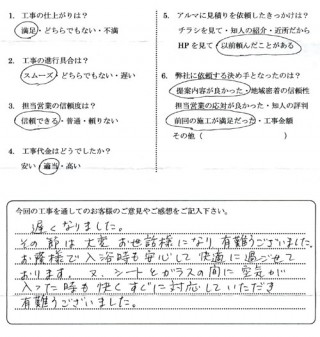 1. 工事の仕上がりは？
満足・どちらでもない・不満
2. 工事の進行具合は？
スムーズ・どちらでもない・遅い
3. 担当営業の信頼度は？
信頼できる・普通・頼りない
4. 工事代金はどうでしたか？
安い・適当・高い
5. アルマに見積りを依頼したきっかけは？
チラシを見て・知人の紹介・近所だから
HPを見て・以前頼んだことがある
6. 弊社に依頼する決め手となったのは？
提案内容が良かった・地域密着の信頼性
担当営業の応対が良かった・知人の評判
前回の施工が満足だった・工事金額
その他（　　　　　　　　）
今回の工事を通してのお客様のご意見やご感想をご記入下さい。
遅くなりました。
その節は大変お世話様になり有難うございました。
お蔭様で入浴時も安心して快適に過ごせて
おります。又、シートとガラスの間に空気が
入った時も快くすぐに対応していただき
有難うございました。